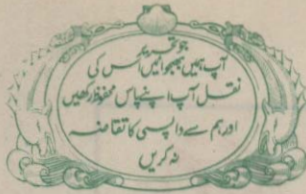 جو تحریر
آپ ہمیں بھجوائیں اس کی
نقل آپ اپنے پاس محفوظ رکھیں
اور ہم سے واپسی کا تقاضہ
نہ کریں